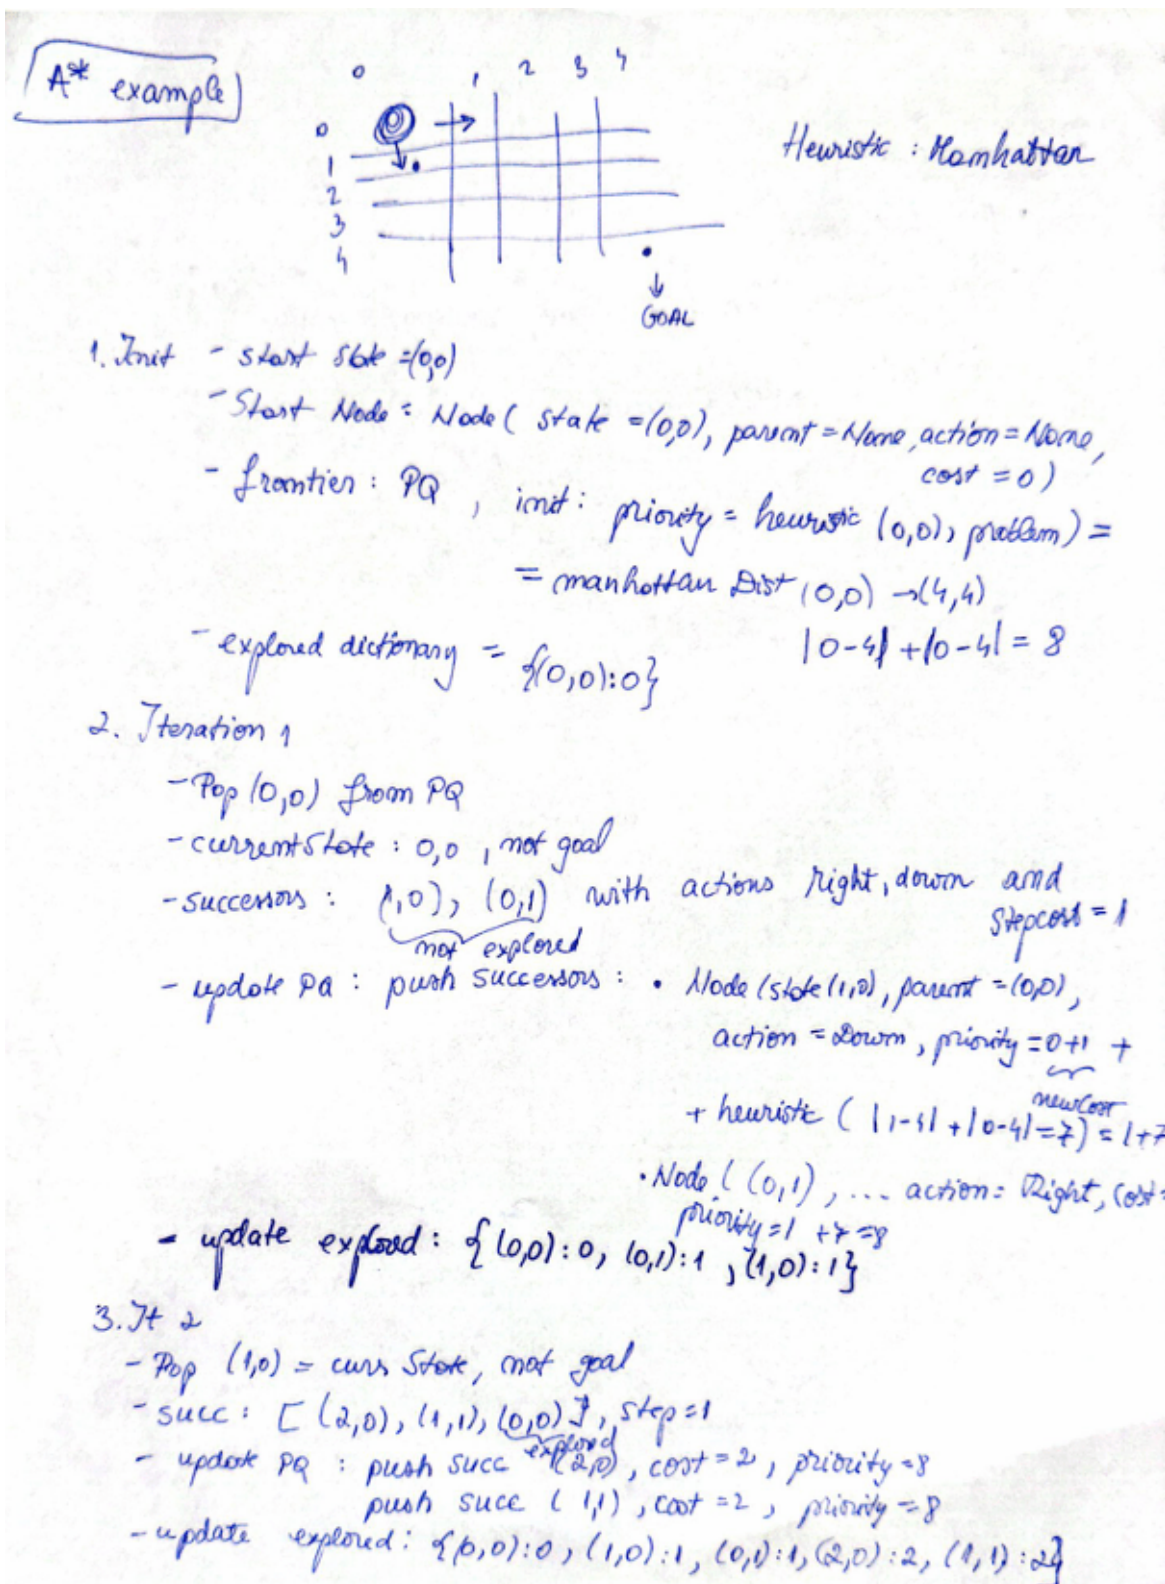 A* example
0 1 2 3 4
0
1
2
3
4
Heuristic : Manhattan
GOAL
1. Init - start state =(0,0)
- Start Node = Node ( state =(0,0), parent = None, action = None,
cost = 0)
- frontier : PQ , init : priority = heuristic (0,0), problem) =
= manhattan Dist (0,0) → (4,4)
|0-4| + |0-4| = 8
- explored dictionary = {(0,0):0}
2. Iteration 1
- Pop (0,0) from PQ
- currentState : 0,0 , not goal
- successors : (1,0), (0,1) with actions right, down and
stepcost = 1
not explored
- update PQ : push successors : • Node (state(1,0), parent =(0,0),
action = Down, priority = 0+1 +
newCost
+ heuristic ( |1-4| + |0-4| = 7) = 1+7
• Node ( (0,1) , ... action = Right, cost =
priority = 1 +7 = 8
- update explored : {(0,0):0, (0,1):1 , (1,0):1}
3. It 2
- Pop (1,0) = curr State, not goal
- succ : [ (2,0), (1,1), (0,0) ], step = 1
explored
- update PQ : push succ (2,0), cost = 2 , priority = 8
push succ ( 1,1) , cost = 2 , priority = 8
- update explored : {(0,0):0 , (1,0):1, (0,1):1, (2,0):2, (1,1):2}